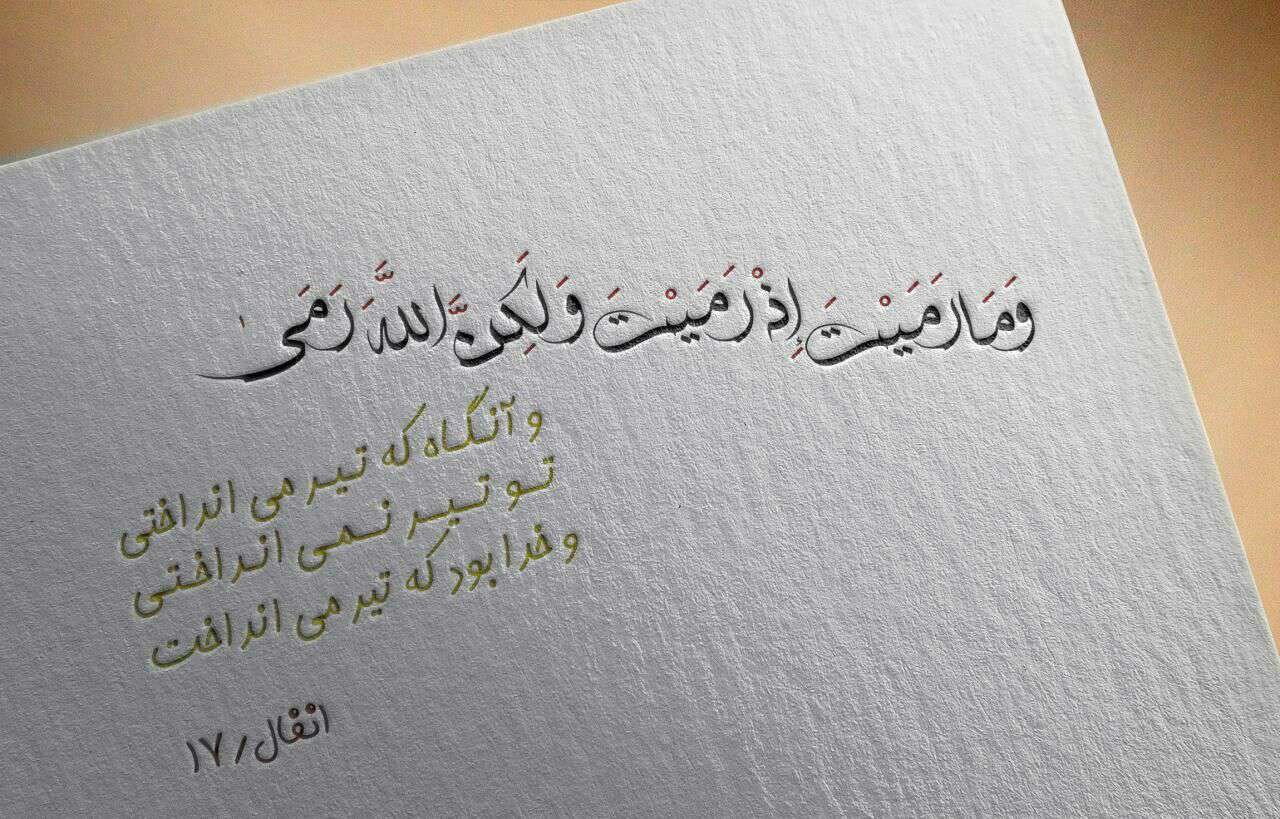 وَمَا رَمَيْتَ إِذْ رَمَيْتَ وَلَكِنَّ اللَّهَ رَمَى
و آنگاه که تیر می انداختی
تو تیر نمی انداختی
و خدا بود که تیر می انداخت
انفال / ۱۷